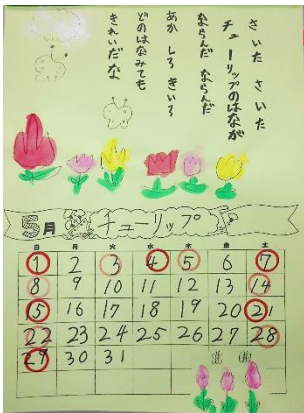 さいた さいた
チューリップのはなが
ならんだ ならんだ
あか しろ きいろ
どのはなみても
きれいだな
5月 チューリップ
日 月 火 水 木 金 土
1 2 3 4 5 6 7
8 9 10 11 12 13 14
15 16 17 18 19 20 21
22 23 24 25 26 27 28
29 30 31